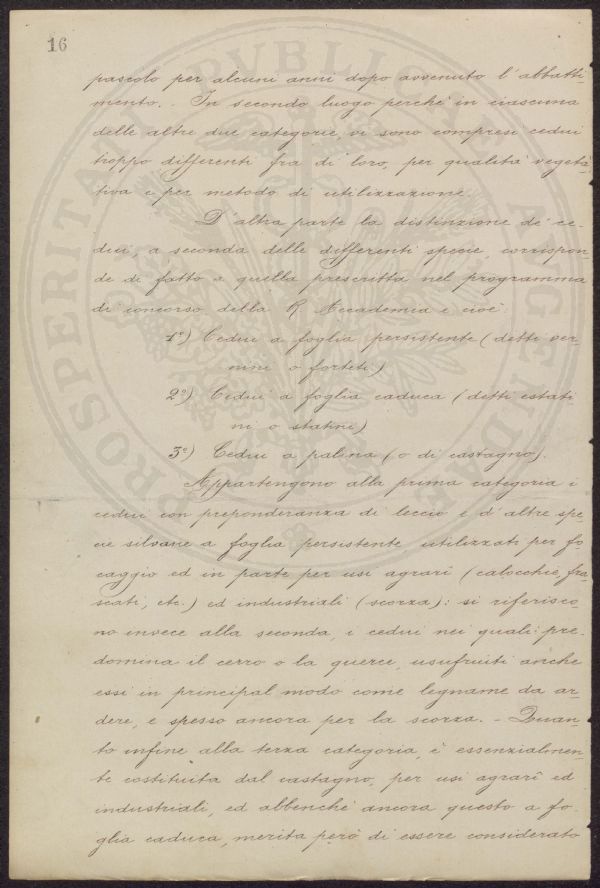 16
pascolo per alcuni anni dopo avvenuto l'abbatti-
mento. - In secondo luogo perchè in ciascuna
delle altre due categorie, vi sono compresi cedui
troppo differenti fra di loro, per qualità vegeta-
tiva e per metodo di utilizzazione.
D'altra parte la distinzione de' ce-
dui, a seconda delle differenti specie, corrispon-
de di fatto a quella prescritta nel programma
di concorso della R. Accademia e cioè:
1º) Cedui a foglia persistente (detti ver-
nini o forteti)
2º) Cedui a foglia caduca (detti estati
ni o statini)
3º) Cedui a palina (o di castagno).
Appartengono alla prima categoria i
cedui con preponderanza di leccio e d'altre spe-
cie silvane a foglia persistente utilizzati per fo-
caggio ed in parte per usi agrarî (calocchie, fra-
scati, etc.) ed industriali (scorza): si riferisco-
no invece alla seconda, i cedui nei quali pre-
domina il cerro o la querci, usufruiti anche
essi in principal modo come legname da ar-
dere, e spesso ancora per la scorza. - Quan-
to infine alla terza categoria, è essenzialmen-
te costituita dal castagno, per usi agrarî ed
industriali, ed abbenchè ancora questo a fo-
glia caduca, merita però di essere considerato
PROSPERITATI PVBLICAE AVGENDAE